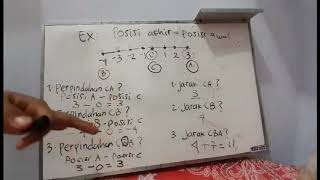 Ex: Posisi akhir - Posisi awal
-4 -3 -2 -1 0 1 2 3
B C A
1. Perpindahan CA?
Posisi A - Posisi C
3 - 0 = 3
Perpindahan CB?
B - Posisi C
= -4
3. Perpindahan CBA?
Posisi A - Posisi C
3 - 0 = 3
1. Jarak CA?
3
2. Jarak CB?
4
3. Jarak CBA?
4 + 7 = 11